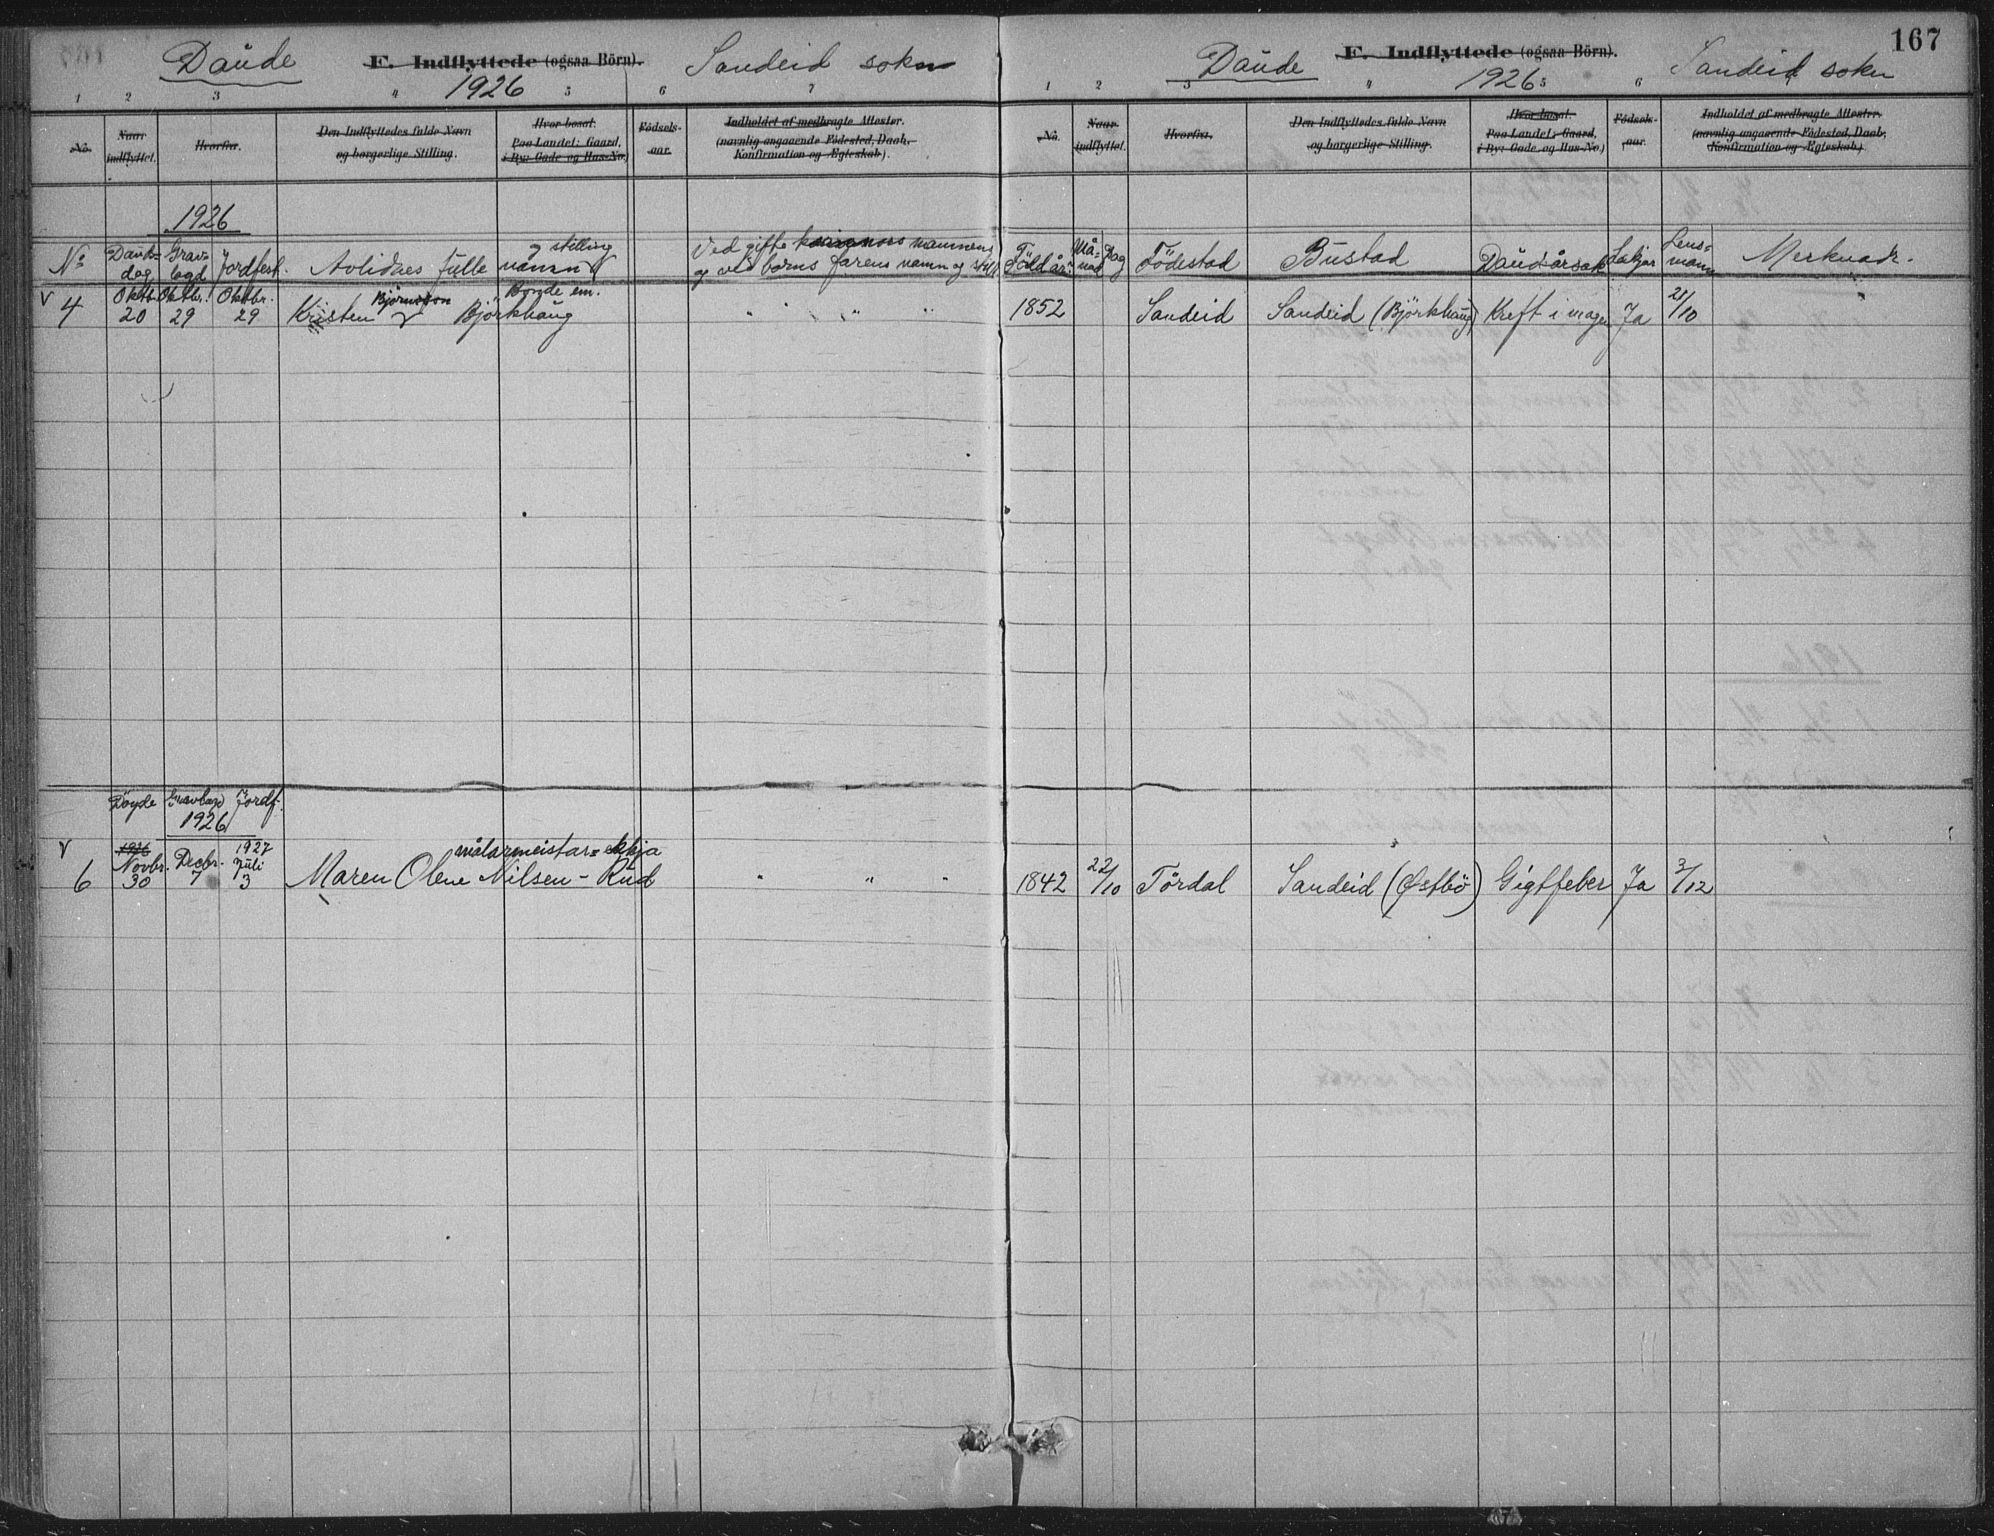 167
Daude F. Indflyttede (ogsaa Börn). Sandeid sokn
1926
1 2 3 4 5 6 7
No. Naar indflyttet. Hvorfra. Den Indflyttedes fulde Navn og borgerlige Stilling. Hvor bosat. Paa Landet: Gaard, i By: Gade og Hus-No. Födsels-aar. Indholdet af medbragte Attester. (navnlig angaaende Födested, Daab, Konfirmation og Ægteskab).
1926
No Dauds-dag Grav-lagd Jordfest. Avlidnes fulle namn og stilling Ved gifte mannens og ved borns farens namn og still.
v 4 Oktbr. 20 Oktbr. 29 Oktbr. 29 Kristen Björnsson Björkhaug Bonde em. " " "
Döyde Gravlagd Jordf.
1926
v 6 1926 Novbr. 30 Decbr. 7 1927 Juli 3 Maren Olene Nilsen - Rud målarmeistar-ekkja " " "
Daude F. Indflyttede (ogsaa Börn). Sandeid sokn
1926
1 2 3 4 5 6
No. Naar indflyttet. Hvorfra. Den Indflyttedes fulde Navn og borgerlige Stilling. Hvor bosat. Paa Landet: Gaard, i By: Gade og Hus-No. Födsels-aar. Indholdet af medbragte Attester. (navnlig angaaende Födested, Daab, Konfirmation og Ægteskab)
Född år Må-nad Dag Födestad Bustad Daudsårsak Lækjar Lens-mann Merknadr.
1852 Sandeid Sandeid (Björkhaug) Kreft i magen Ja 21/10
1842 22/10 Tördal Sandeid (Østbö) Gigtfeber Ja 3/12